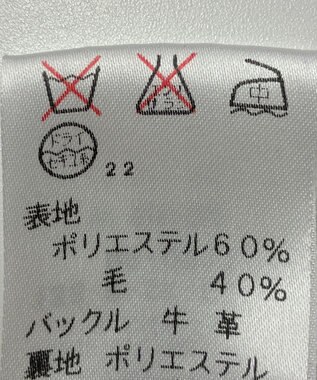 エンソ
サラシ
中
ドライ
セキユ系
22
表地
ポリエステル60%
毛 40%
バックル 牛革
裏地 ポリエステル